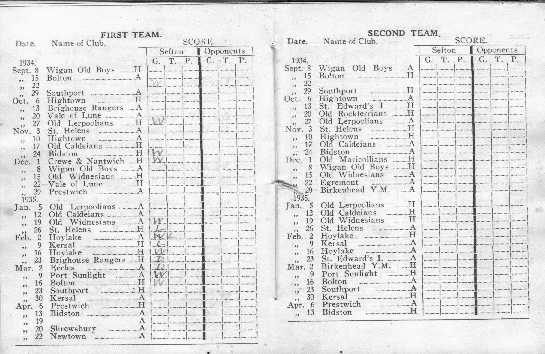 FIRST TEAM.
Date. Name of Club. SCORE.
Sefton Opponents
G. T. P. G. T. P.
1934.
Sept. 8 Wigan Old Boys H
,, 15 Bolton A
,, 22
,, 29 Southport A
Oct. 6 Hightown H
,, 13 Brighouse Rangers A
,, 20 Vale of Lune A
,, 27 Old Lerpoolians H W
Nov. 3 St. Helens A
,, 10 Hightown A
,, 17 Old Caldeians H
,, 24 Bidston H W
Dec. 1 Crewe & Nantwich H W
,, 8 Wigan Old Boys A
,, 15 Old Widnesians H
,, 22 Vale of Lune H
,, 29 Prestwich A
1935.
Jan. 5 Old Lerpoolians A
,, 12 Old Caldeians A
,, 19 Old Widnesians A W
,, 26 St. Helens H
Feb. 2 Hoylake A
,, 9 Kersal H
,, 16 Hoylake H
,, 23 Brighouse Rangers H
Mar. 2 Eccles A
,, 9 Port Sunlight A W
,, 16 Bolton H W
,, 23 Southport H
,, 30 Kersal A
Apr. 6 Prestwich H
,, 13 Bidston A
,, 19 A
,, 20 Shrewsbury A
,, 22 Newtown A
SECOND TEAM.
Date. Name of Club. SCORE.
Sefton Opponents
G. T. P. G. T. P.
1934.
Sept. 8 Wigan Old Boys A
,, 15 Bolton H
,, 22
,, 29 Southport H
Oct. 6 Hightown A
,, 13 St. Edward's H
,, 20 Old Rockferrians H
,, 27 Old Lerpoolians A
Nov. 3 St. Helens H
,, 10 Hightown H
,, 17 Old Caldeians A
,, 24 Bidston A
Dec. 1 Old Maricollians H
,, 8 Wigan Old Boys H
,, 15 Old Widnesians A
,, 22 Egremont
,, 29 Birkenhead Y.M. A
1935.
Jan. 5 Old Lerpoolians H
,, 12 Old Caldeians H
,, 19 Old Widnesians H
,, 26 St. Helens A
Feb. 2 Hoylake H
,, 9 Kersal A
,, 16 Hoylake A
,, 23 St. Edward's A
Mar. 2 Birkenhead Y.M. H
,, 9 Port Sunlight H
,, 16 Bolton A
,, 23 Southport A
,, 30 Kersal H
Apr. 6 Prestwich A
,, 13 Bidston H